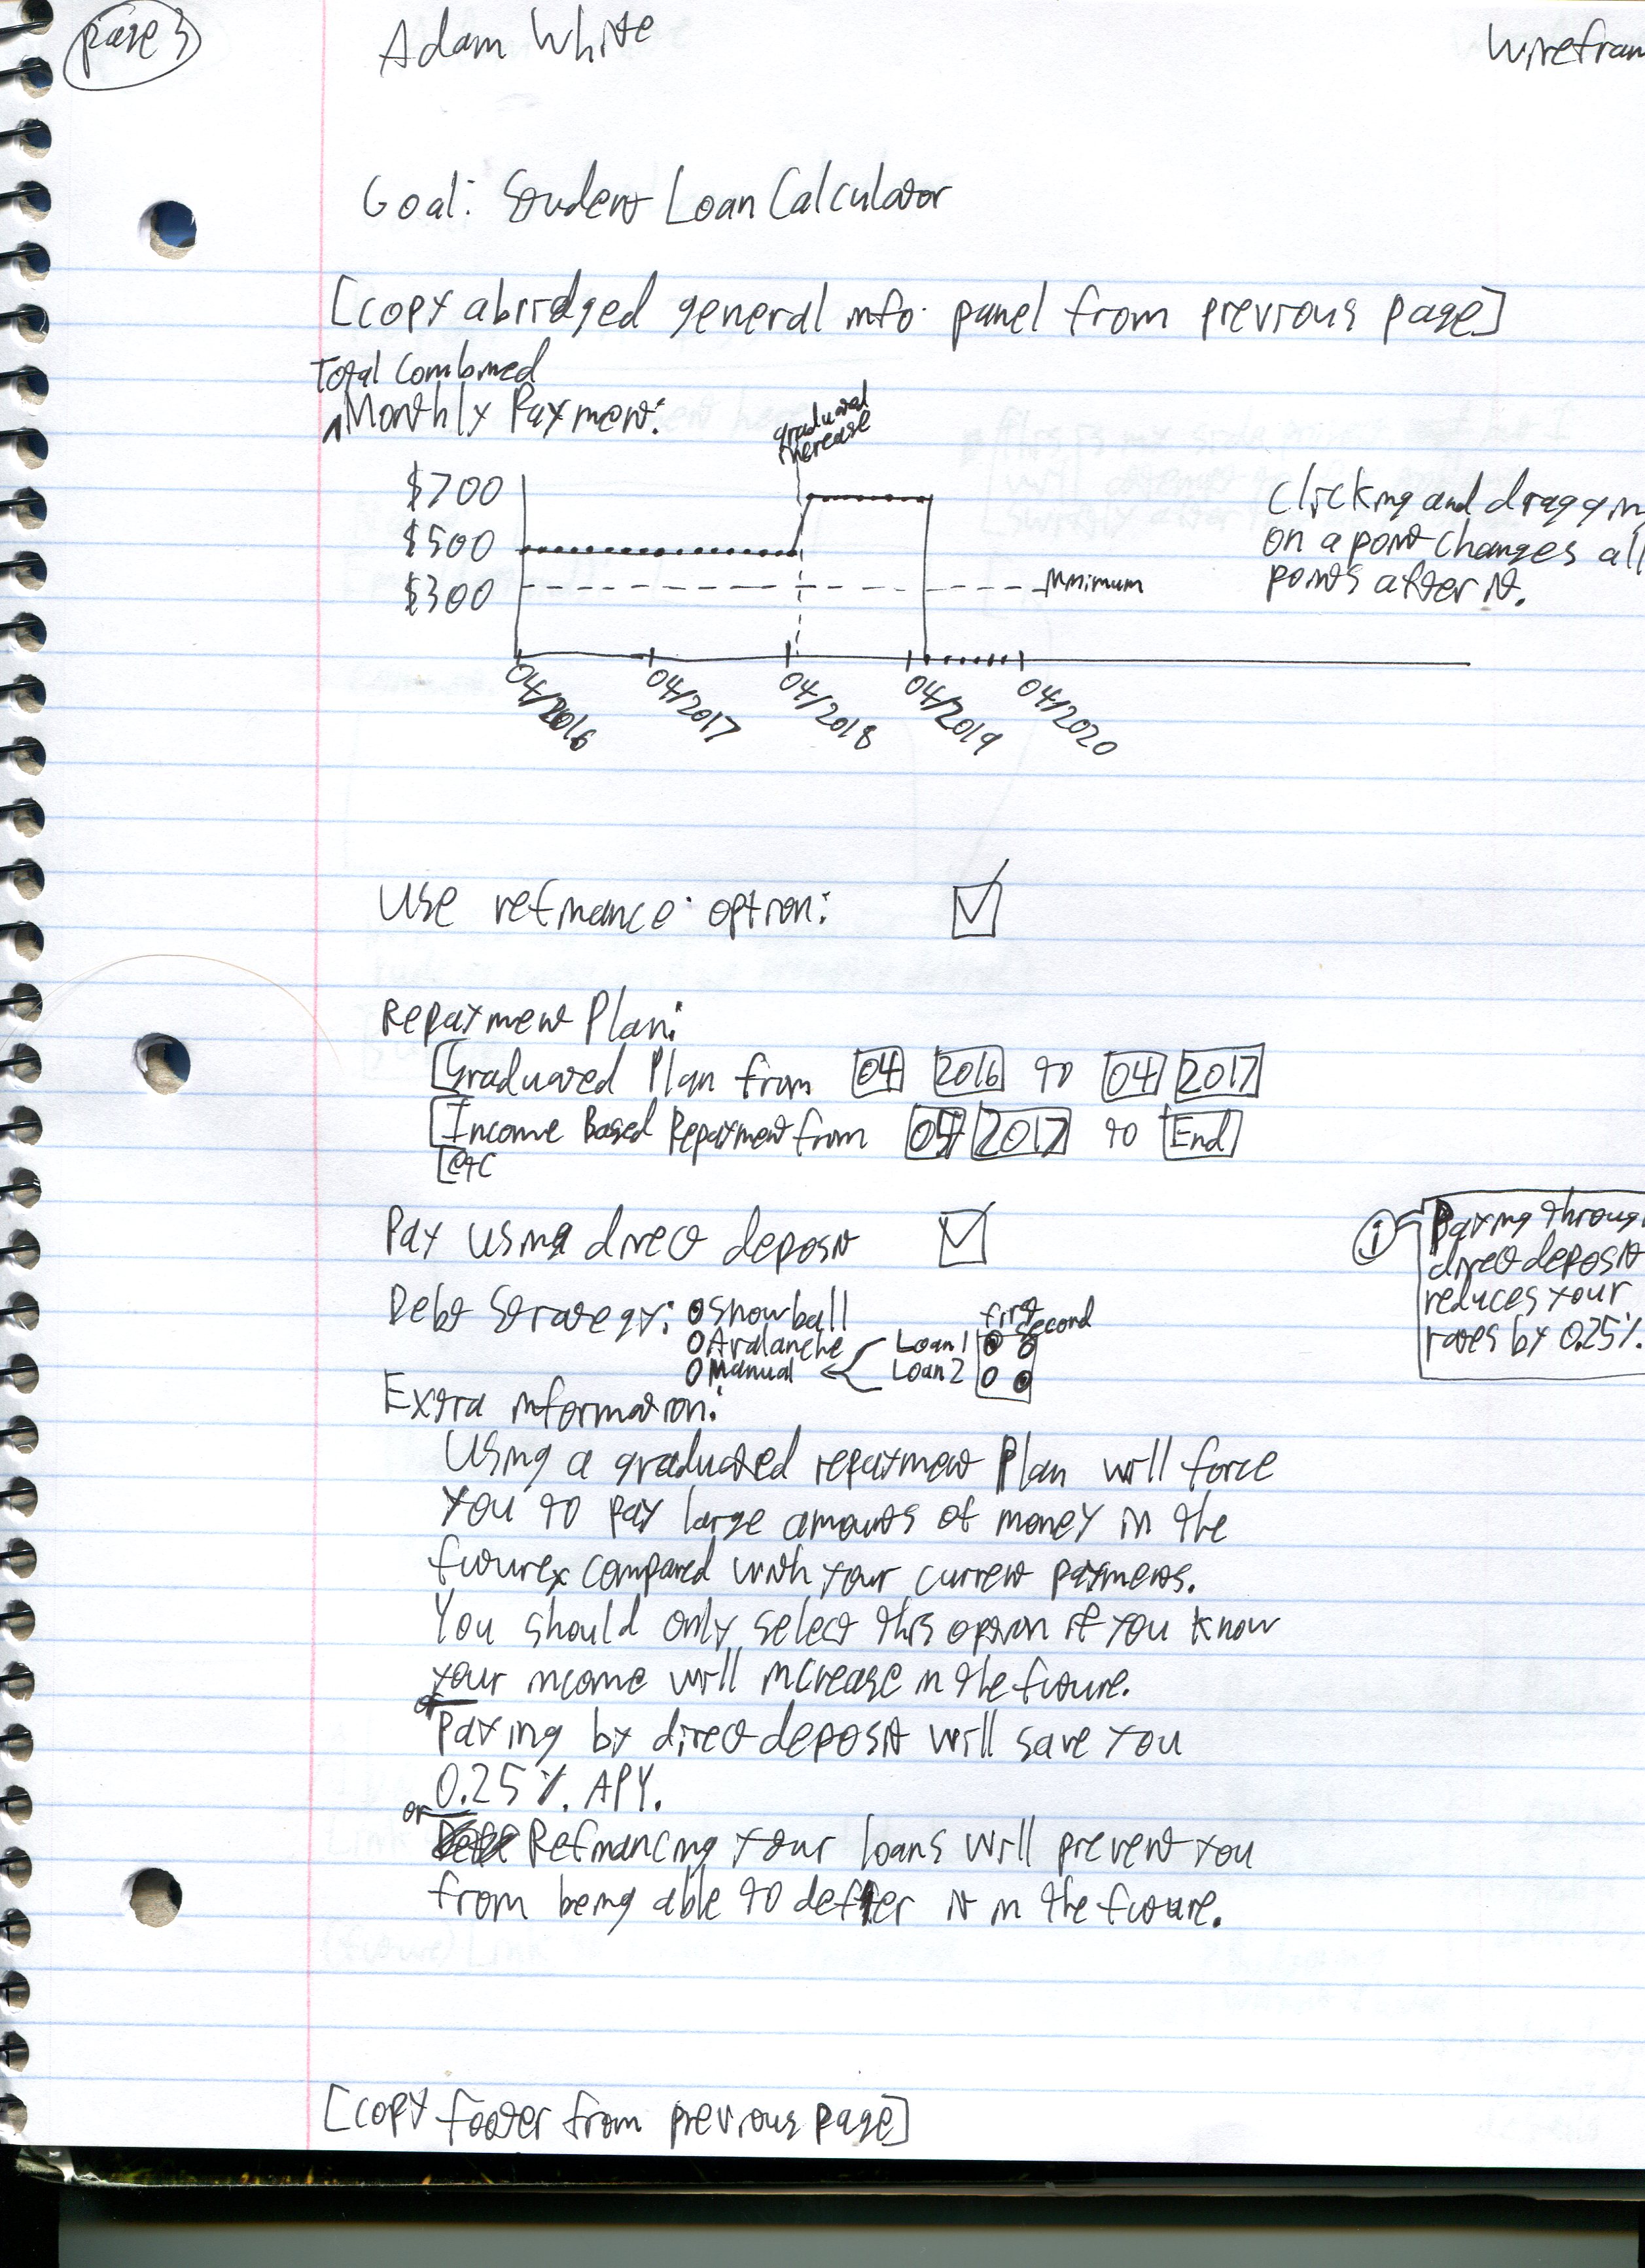 page 3
Adam White
Wirefram
Goal: Student Loan Calculator
[copy abridged general info. panel from previous page]
Total Combined
Monthly Payment:
graduated
increase
$700
$500
$300
Minimum
04/2016
04/2017
04/2018
04/2019
04/2020
Clicking and dragging
on a point changes all
points after it.
Use refinance option:
Repayment Plan:
[Graduated Plan from 04 2016 to 04 2017
[Income Based Repayment from 05 2017 to End]
[etc
Pay using direct deposit
i
Paying through
direct deposit
reduces your
rates by 0.25%.
Debt Strategy: Snowball
Avalanche
Manual
first
second
Loan 1
Loan 2
Extra information:
Using a graduated repayment plan will force
you to pay large amounts of money in the
future compared with your current payments.
You should only select this option if you know
your income will increase in the future.
or
Paying by direct deposit will save you
0.25%. APY.
or
Refinancing your loans will prevent you
from being able to deffer it in the future.
[copy footer from previous page]